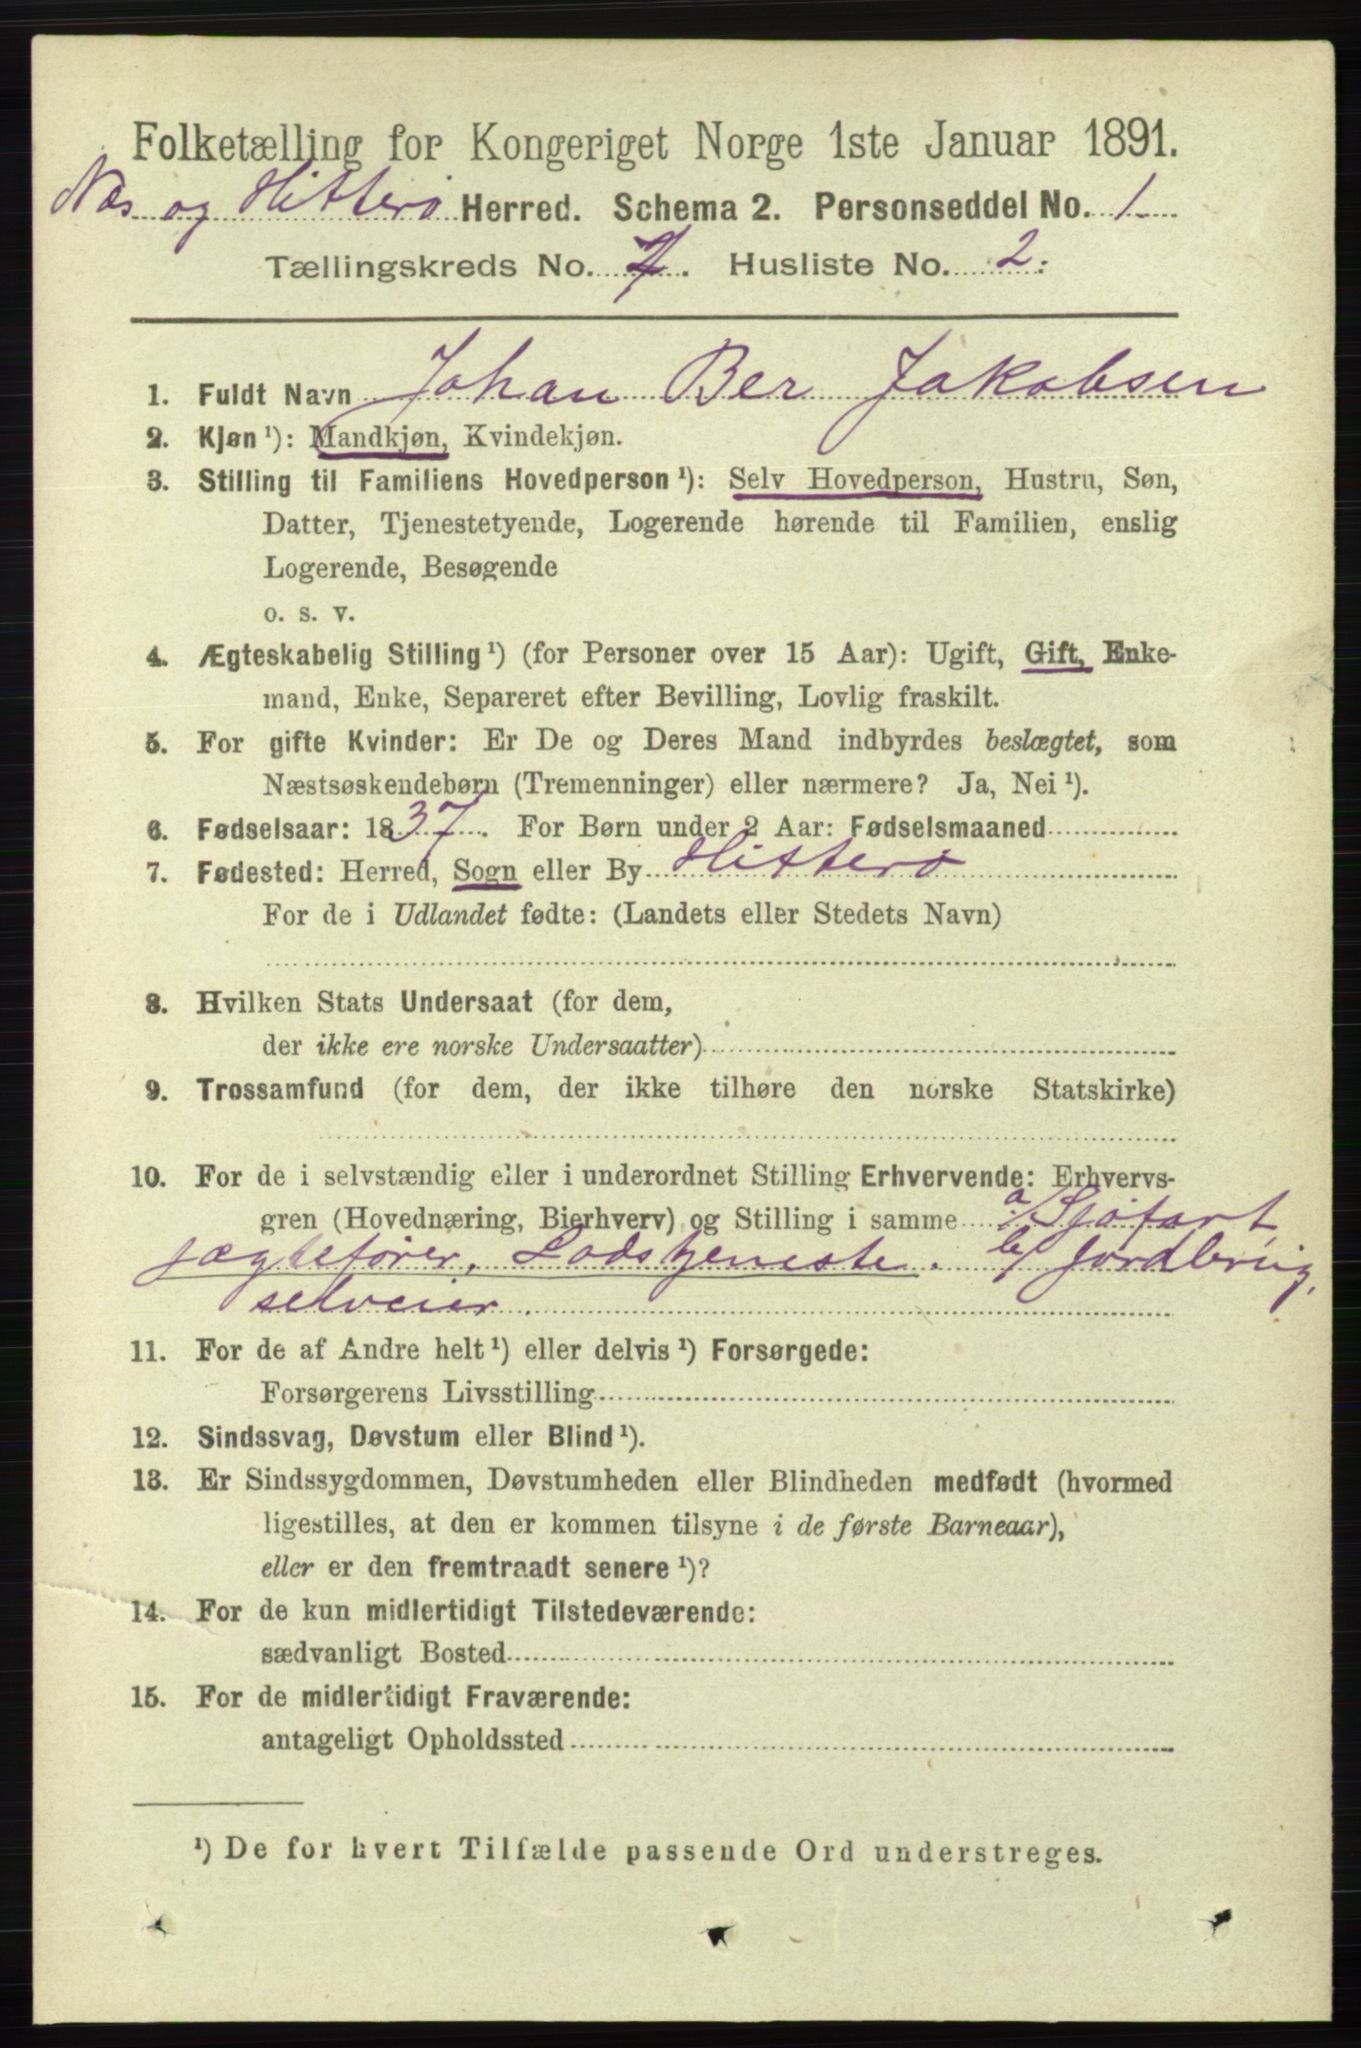 Folketælling for Kongeriget Norge 1ste Januar 1891.
Næs og Hitterø Herred. Schema 2. Personseddel No. 1
Tællingskreds No. 7. Husliste No. 2.
1. Fuldt Navn Johan Ber Jakobsen
2. Kjøn ¹): Mandkjøn, Kvindekjøn.
3. Stilling til Familiens Hovedperson ¹): Selv Hovedperson, Hustru, Søn,
Datter, Tjenestetyende, Logerende hørende til Familien, enslig
Logerende, Besøgende
o. s. v.
4. Ægteskabelig Stilling ¹) (for Personer over 15 Aar): Ugift, Gift, Enke-
mand, Enke, Separeret efter Bevilling, Lovlig fraskilt.
5. For gifte Kvinder: Er De og Deres Mand indbyrdes beslægtet, som
Næstsøskendebørn (Tremenninger) eller nærmere? Ja, Nei ¹).
6. Fødselsaar: 1837. For Børn under 2 Aar: Fødselsmaaned
7. Fødested: Herred, Sogn eller By Hitterø
For de i Udlandet fødte: (Landets eller Stedets Navn)
8. Hvilken Stats Undersaat (for dem,
der ikke ere norske Undersaatter)
9. Trossamfund (for dem, der ikke tilhøre den norske Statskirke)
10. For de i selvstændig eller i underordnet Stilling Erhvervende: Erhvervs-
gren (Hovednæring, Bierhverv) og Stilling i samme a/ Sjøfart,
jægtefører, Lodstjeneste. b/ Jordbrug,
selveier.
11. For de af Andre helt ¹) eller delvis ¹) Forsørgede:
Forsørgerens Livsstilling
12. Sindssvag, Døvstum eller Blind ¹).
13. Er Sindssygdommen, Døvstumheden eller Blindheden medfødt (hvormed
ligestilles, at den er kommen tilsyne i de første Barneaar),
eller er den fremtraadt senere ¹)?
14. For de kun midlertidigt Tilstedeværende:
sædvanligt Bosted
15. For de midlertidigt Fraværende:
antageligt Opholdssted
¹) De for hvert Tilfælde passende Ord understreges.